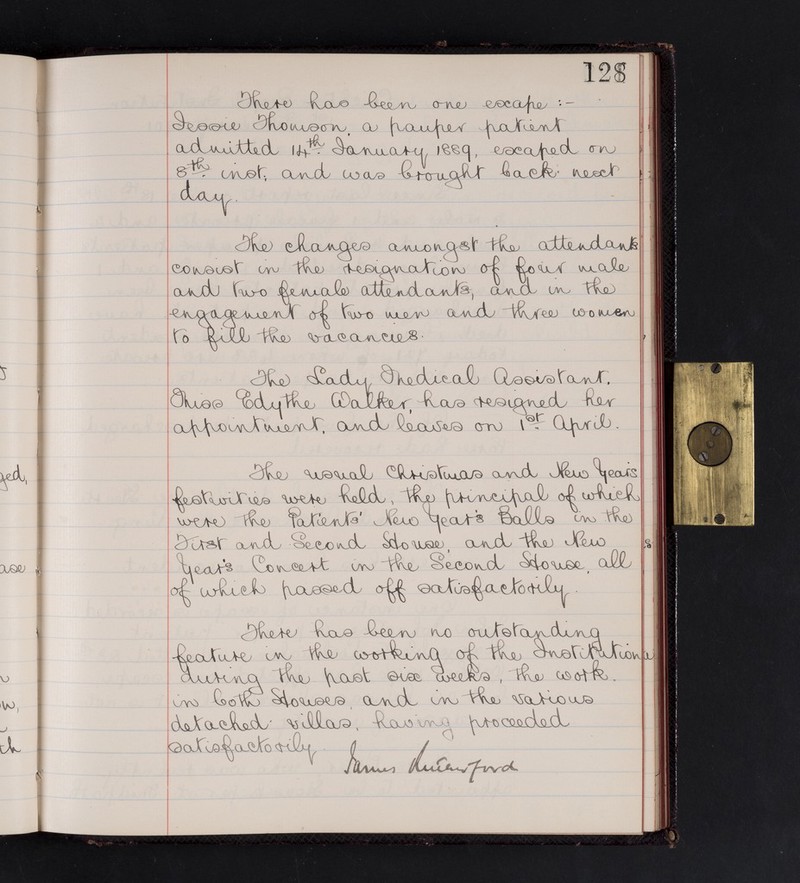 128
There has been one escape :-
Jessie Thomson, a pauper patient
admitted 14th January 1889, escaped on
8th inst, and was brought back next
day.
The changes amongst the attendants
consist in the resignation of four male
and two female attendants, and in the
engagement of two men and three women
to fill the vacancies.
The Lady Medical Assistant,
Miss Edythe Walker, has resigned her
appointment, and leaves on 1st April.
The usual Christmas and New Years
festivities were held, the principal of which
were the Patients' New Year's Balls in the
First and Second House, and the New
Year's Concert in the Second House, all
of which passed off satisfactorily.
There has been no outstanding
feature in the working of the Institution
during the past six weeks, the work
in both Houses, and in the various
detached villas, having proceeded
satisfactorily.
James Rutherford